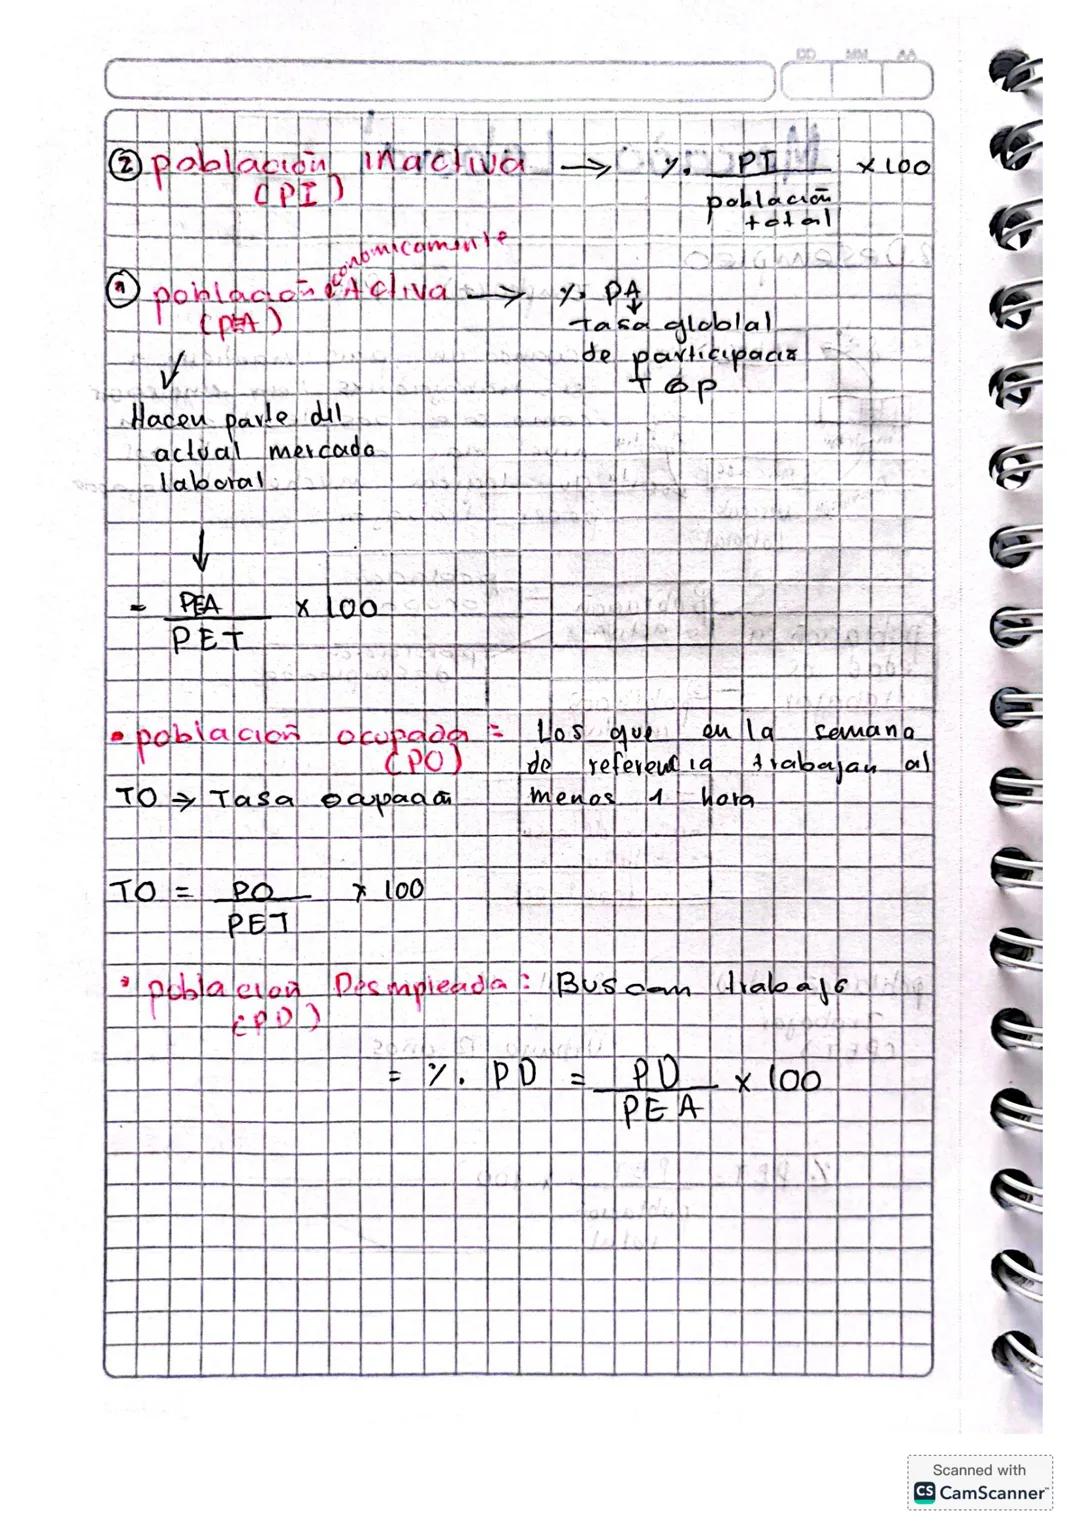 DD MM AA
② población inactiva → %. PI x 100
(PI) población
total
economicamente
① poblacion Activa → %. PA
(PEA) ↓
Tasa globlal
de participación
TGP
Hacen parte del
actual mercado
laboral
↓
= PEA x 100
PET
• población ocupada = Los que en la semana
(PO) de referencia trabajan al
TO ⇒ Tasa ocupación menos 1 hora
TO = PO x 100
PET
• población Desmpleada: Buscan trabajo
(PD)
= %. PD = PD x 100
PEA
Scanned with
CS CamScanner